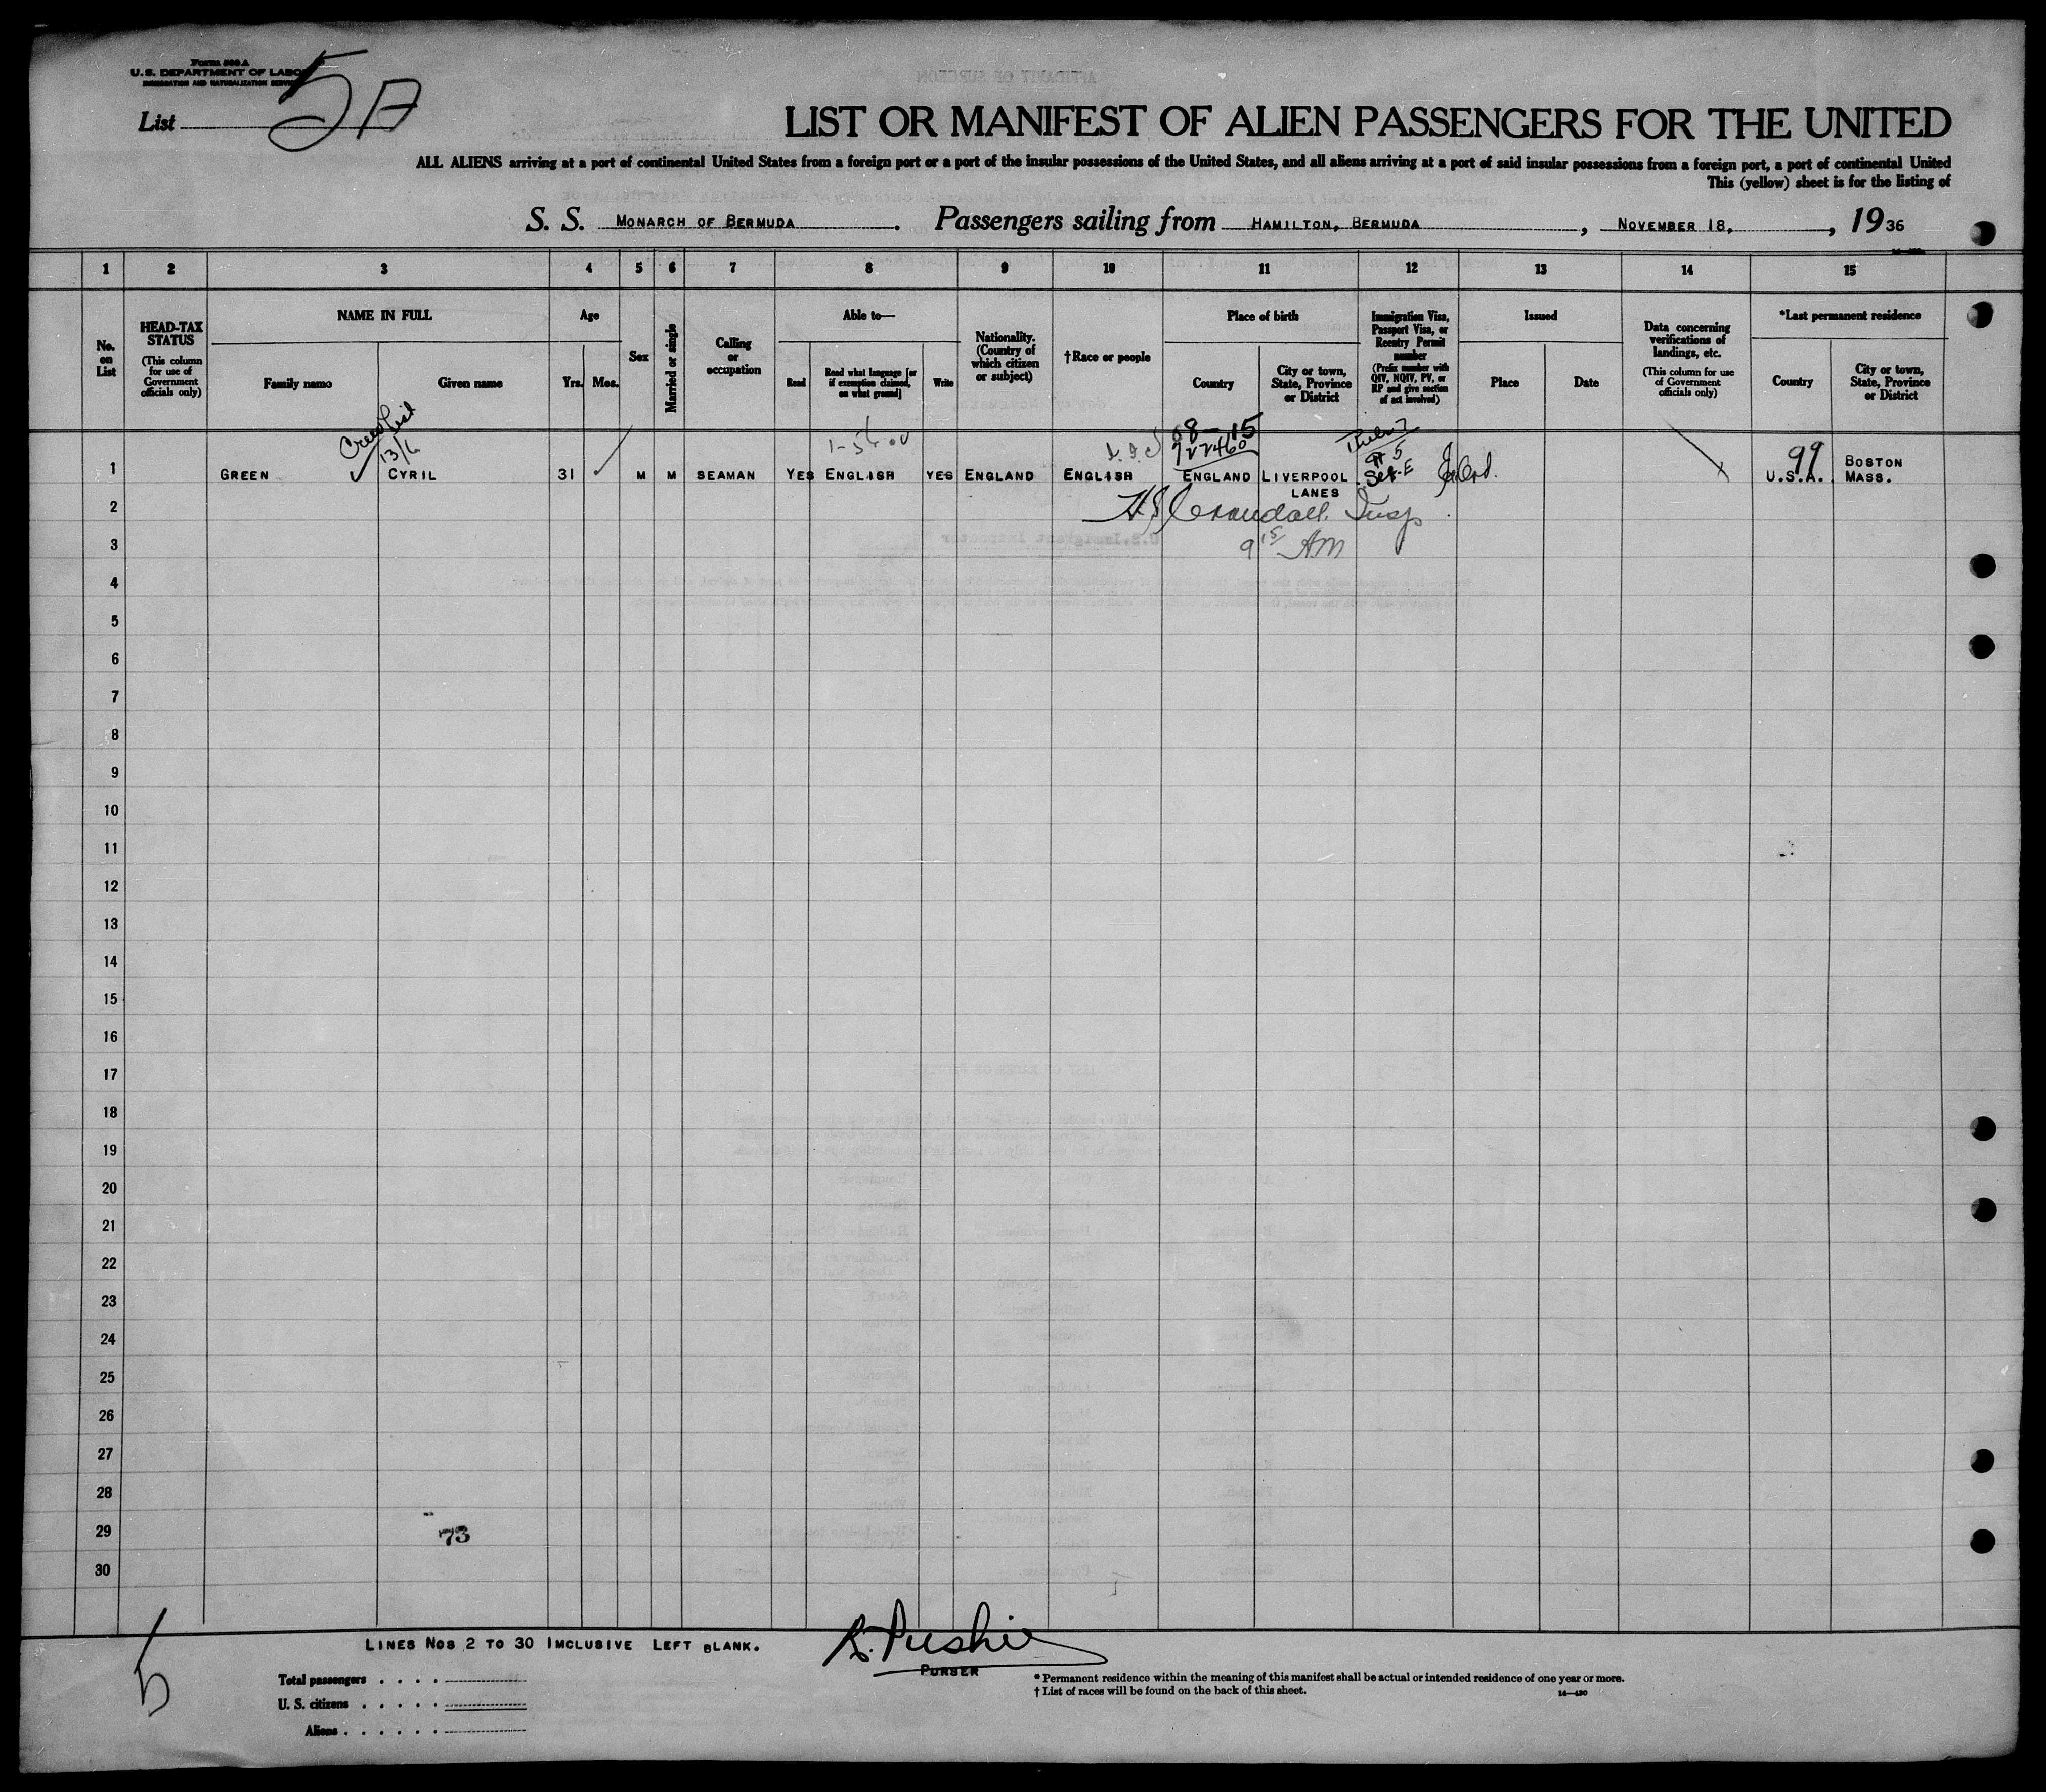 Form 500 A
U. S. DEPARTMENT OF LABOR
IMMIGRATION AND NATURALIZATION SERVICE
List 5A
LIST OR MANIFEST OF ALIEN PASSENGERS FOR THE UNITED
ALL ALIENS arriving at a port of continental United States from a foreign port or a port of the insular possessions of the United States, and all aliens arriving at a port of said insular possessions from a foreign port, a port of continental United
This (yellow) sheet is for the listing of
S. S. MONARCH OF BERMUDA . Passengers sailing from HAMILTON, BERMUDA , NOVEMBER 18, , 19 36
1 2 3 4 5 6 7 8 9 10 11 12 13 14 15
No. on List
HEAD-TAX STATUS
(This column for use of Government officials only)
NAME IN FULL
Family name
Given name
Age
Yrs.
Mos.
Sex
Married or single
Calling or occupation
Able to—
Read
Read what language [or if exemption claimed, on what ground]
Write
Nationality. (Country of which citizen or subject)
†Race or people
Place of birth
Country
City or town, State, Province or District
Immigration Visa, Passport Visa, or Reentry Permit number
(Prefix number with QIV, NQIV, PV, or RP and give section of act involved)
Issued
Place
Date
Data concerning verifications of landings, etc.
(This column for use of Government officials only)
*Last permanent residence
Country
City or town, State, Province or District
Crew List
13/6
68-15
922460
99
1 GREEN CYRIL 31 M M SEAMAN YES ENGLISH YES ENGLAND ENGLISH ENGLAND LIVERPOOL LANES U.S.A. BOSTON MASS.
H S Crandall Insp
9 15 AM
2
3
4
5
6
7
8
9
10
11
12
13
14
15
16
17
18
19
20
21
22
23
24
25
26
27
28
29
73
30
LINES NOS 2 TO 30 IMCLUSIVE LEFT BLANK.
R. Pushie
PURSER
5
Total passengers
U. S. citizens
Aliens
* Permanent residence within the meaning of this manifest shall be actual or intended residence of one year or more.
† List of races will be found on the back of this sheet.
14—430